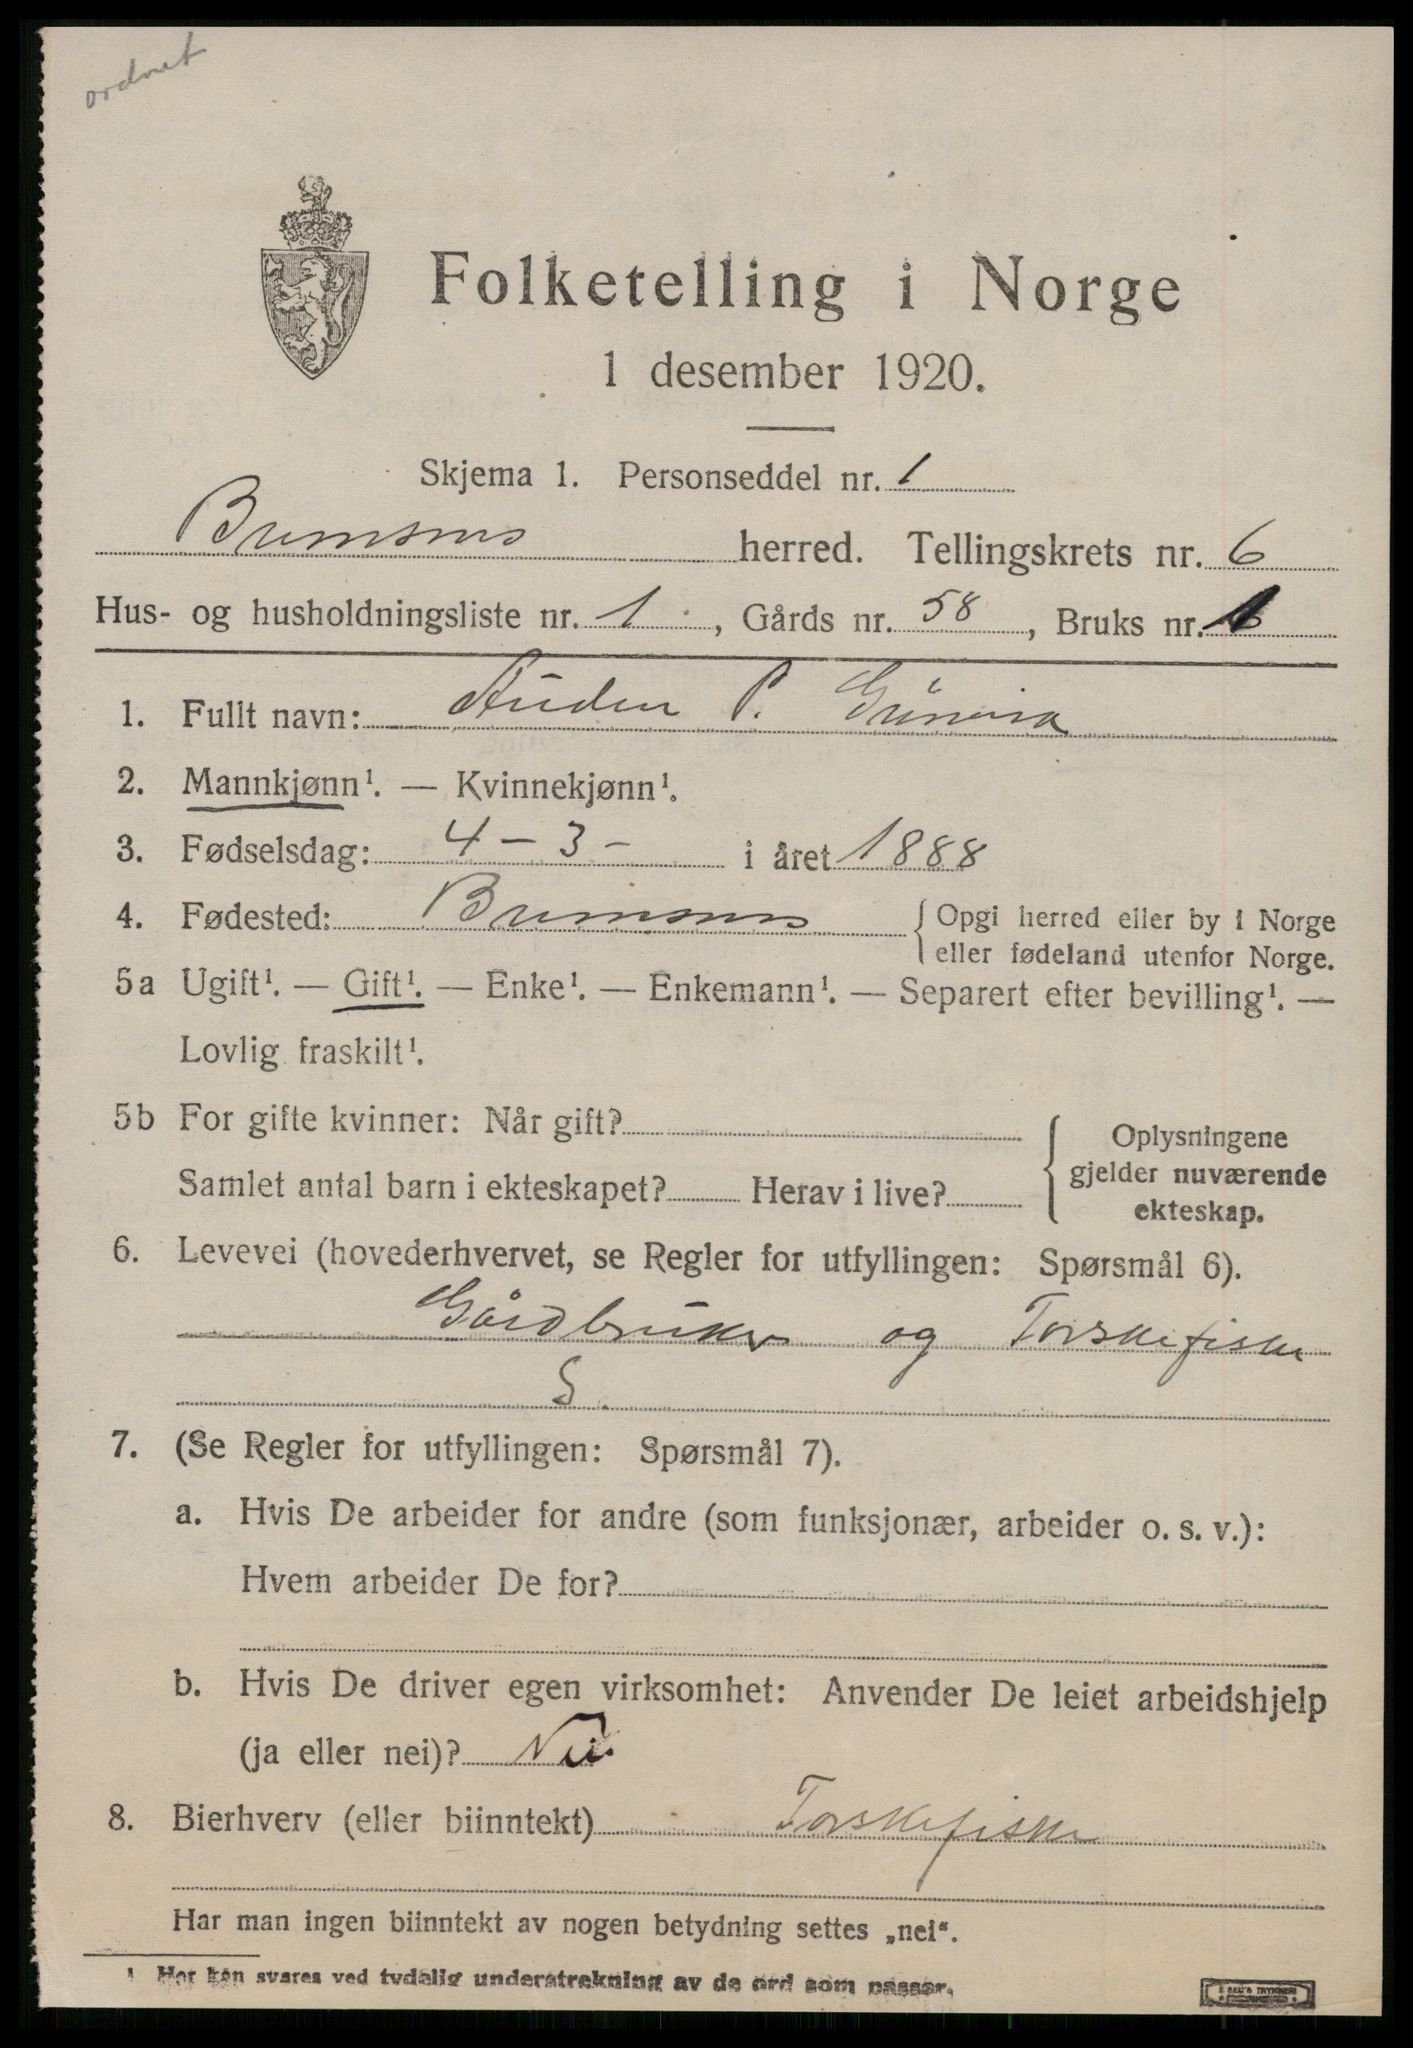 ordnet
Folketelling i Norge
1 desember 1920.
Skjema 1. Personseddel nr. 1
Bremsnes herred. Tellingskrets nr. 6
Hus- og husholdningsliste nr. 1, Gårds nr. 58, Bruks nr. 1
1. Fullt navn: P.
2. Mannkjønn¹. — Kvinnekjønn¹.
3. Fødselsdag: 4 - 3 - i året 1888
4. Fødested: Bremsnes { Opgi herred eller by i Norge
eller fødeland utenfor Norge.
5a Ugift¹. — Gift¹. — Enke¹. — Enkemann¹. — Separert efter bevilling¹. —
Lovlig fraskilt¹.
5b For gifte kvinner: Når gift? { Oplysningene
gjelder nuværende
Samlet antal barn i ekteskapet? Herav i live?
ekteskap.
6. Levevei (hovederhvervet, se Regler for utfyllingen: Spørsmål 6).
Gårdbruker og Torskefiske
S.
7. (Se Regler for utfyllingen: Spørsmål 7).
a. Hvis De arbeider for andre (som funksjonær, arbeider o. s. v.):
Hvem arbeider De for?
b. Hvis De driver egen virksomhet: Anvender De leiet arbeidshjelp
(ja eller nei)? Nei.
8. Bierhverv (eller biinntekt) Torskefiske
Har man ingen biinntekt av nogen betydning settes „nei“.
¹ Her kan svares ved tydelig understrekning av de ord som passer.